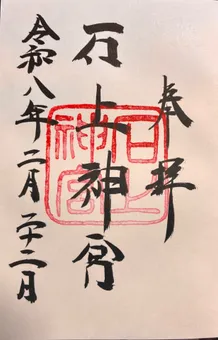 奉拝
石上神宮
令和八年二月二十二日
石上神宮